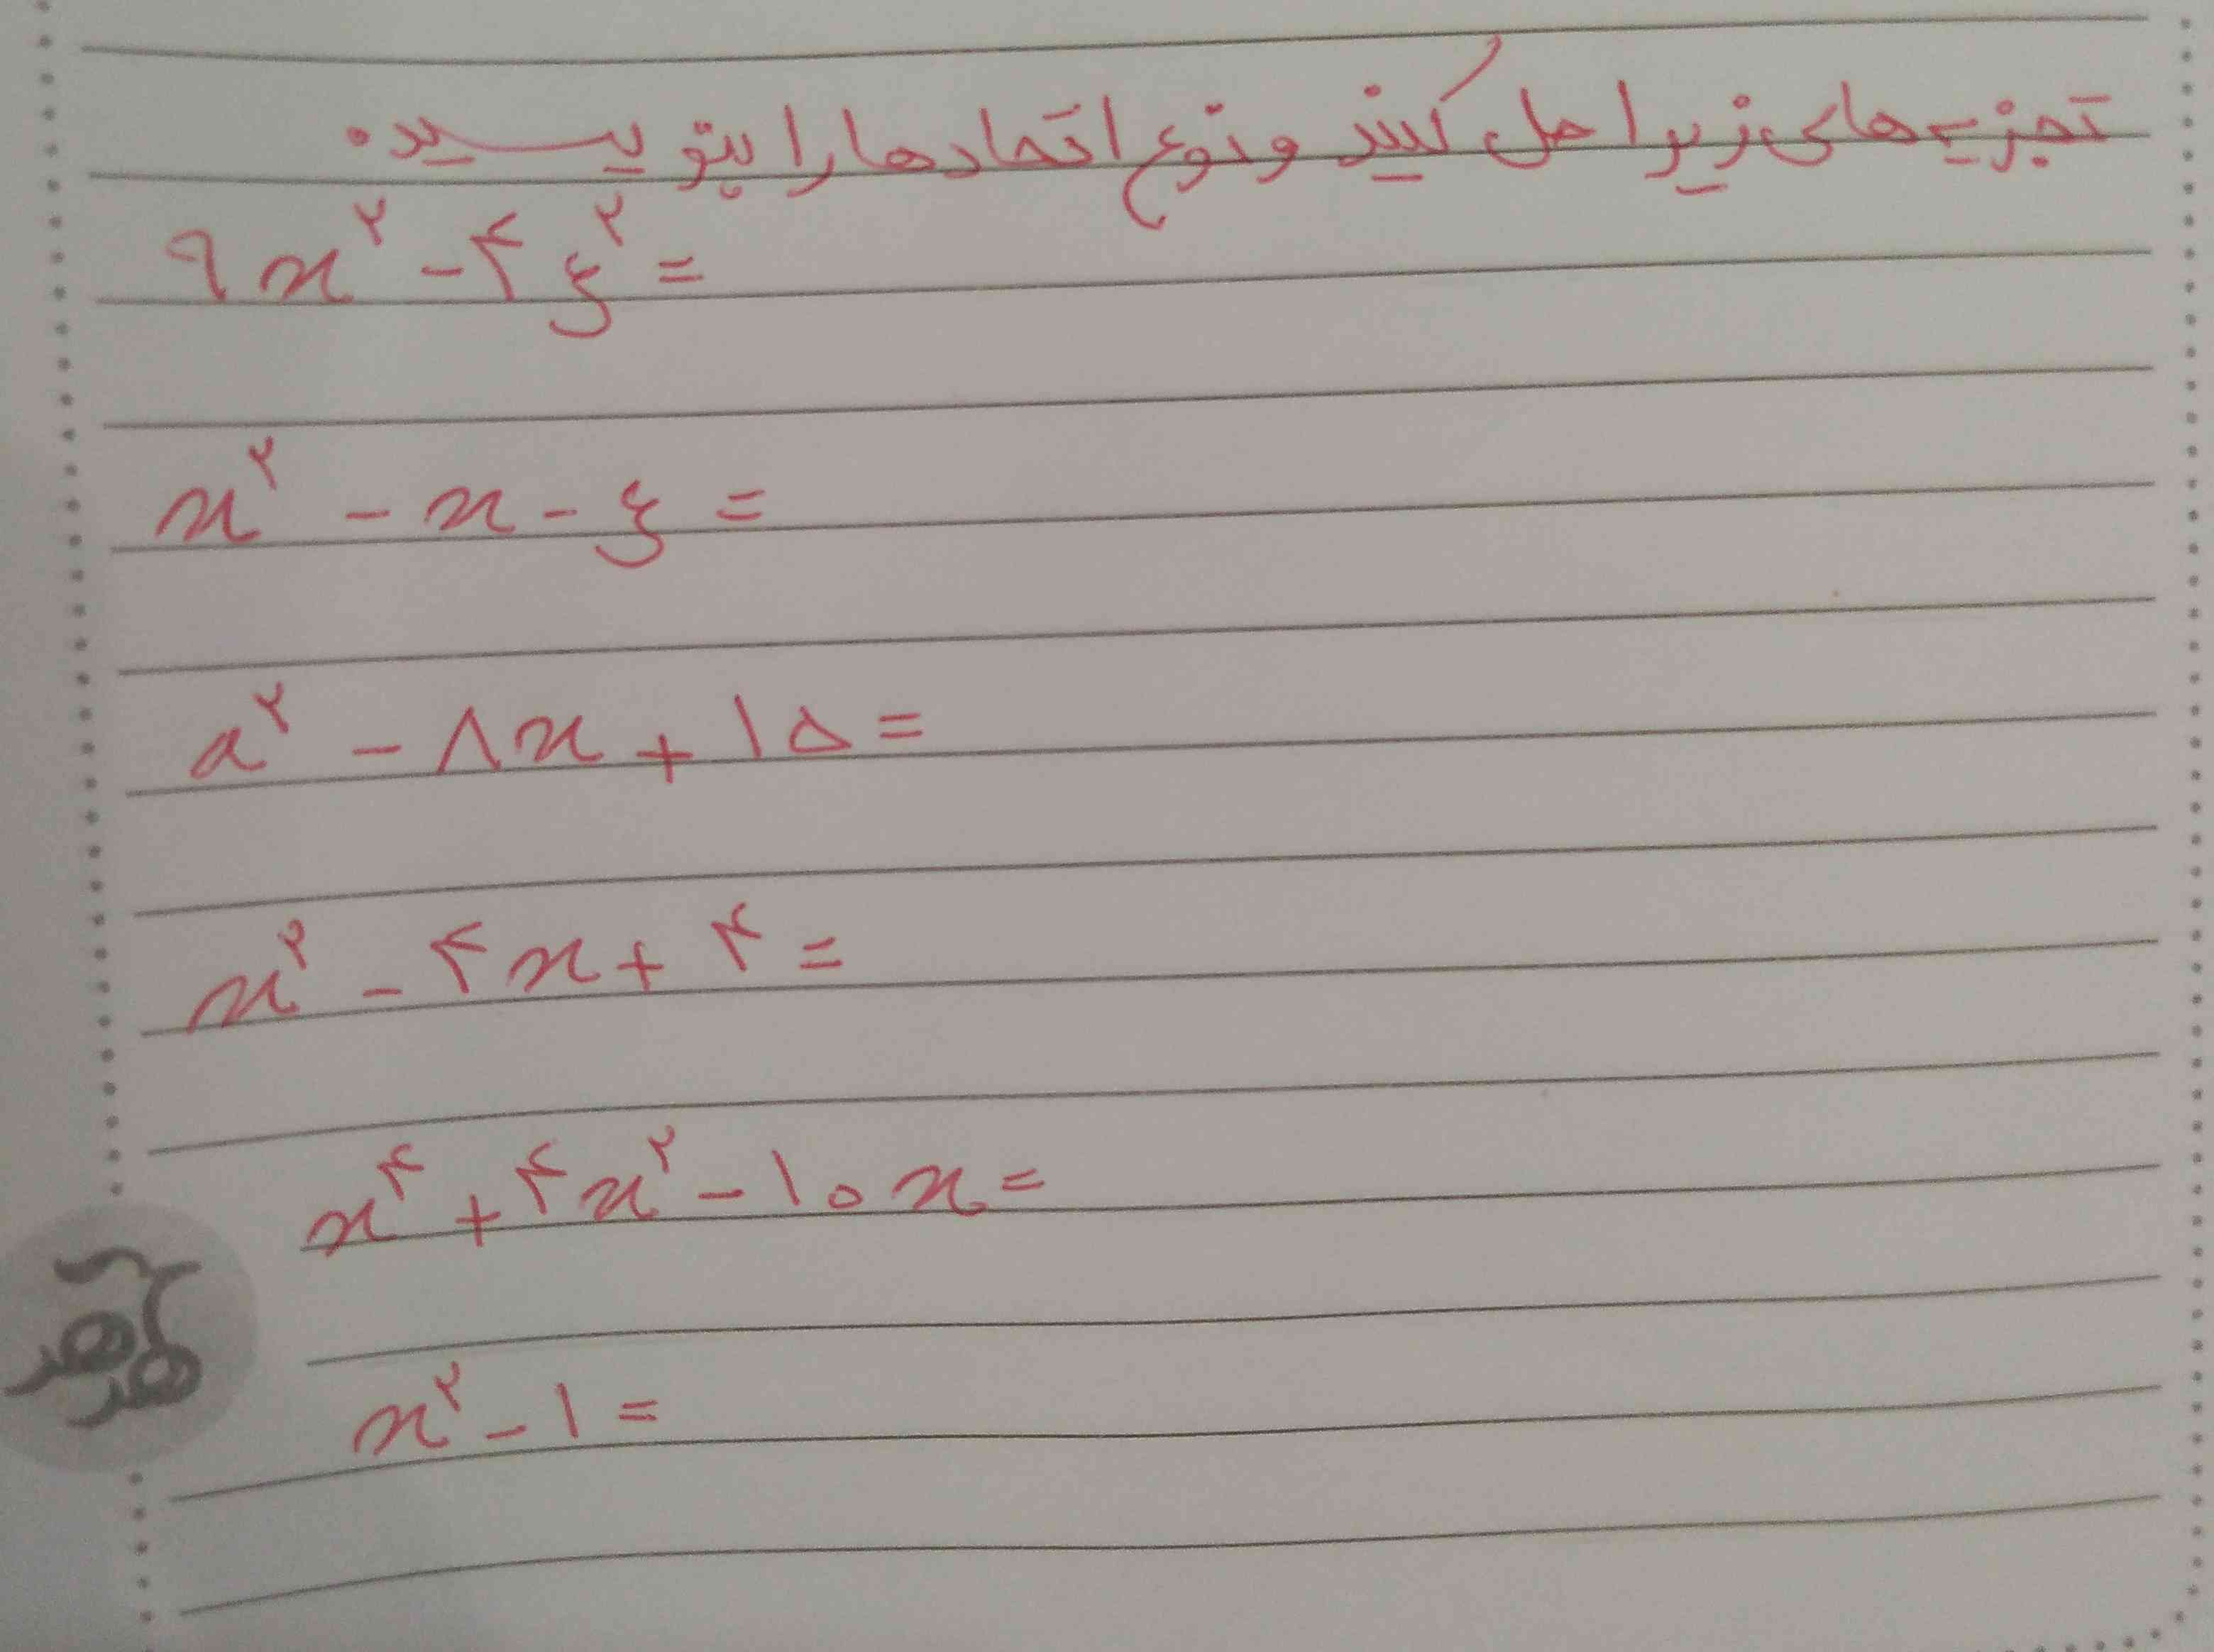 تجزیه های زیر را حل کنید و نوع اتحادها را بنویسید.
۹x^۲ - ۴y^۲ =
x^۲ - x - ۶ =
a^۲ - ۸x + ۱۵ =
x^۲ - ۴x + ۴ =
x^۴ + ۴x^۲ - ۱۰x =
x^۲ - ۱ =